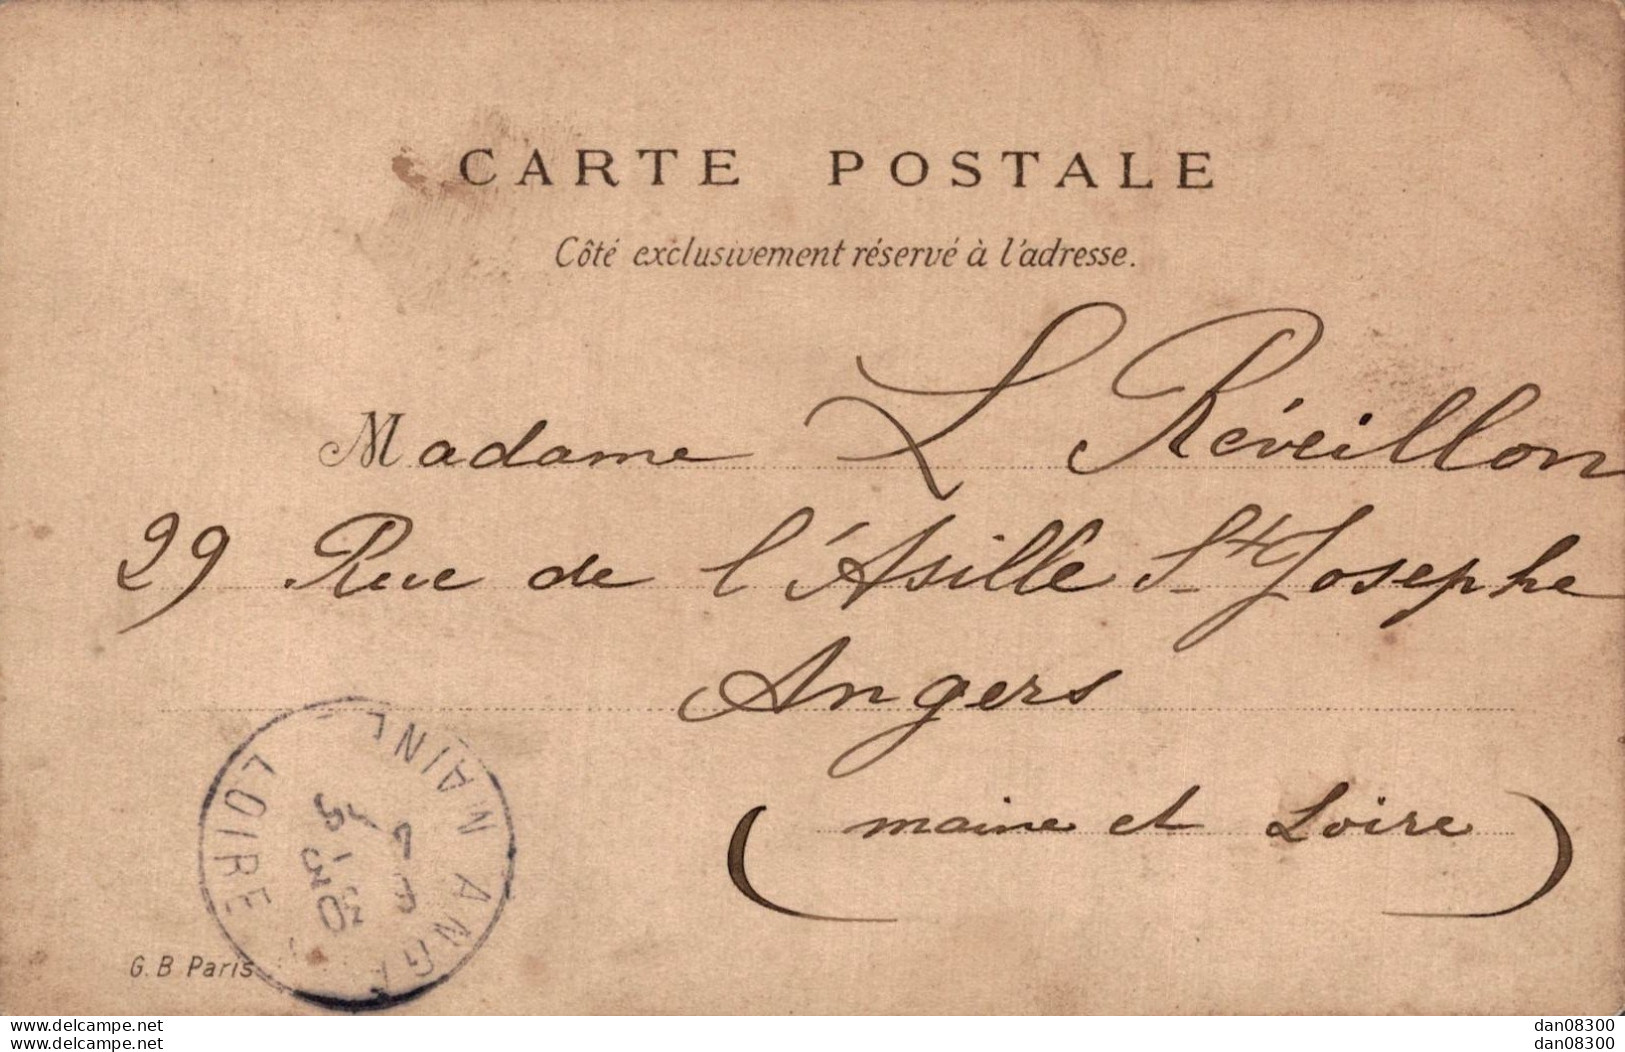 CARTE POSTALE
Côté exclusivement réservé à l'adresse.
Madame L Réveillon
29 Rue de l'Asille St Josephe
Angers
(maine et Loire)
MAINE
LOIRE
G. B Paris
www.delcampe.net dan08300
www.delcampe.net dan08300